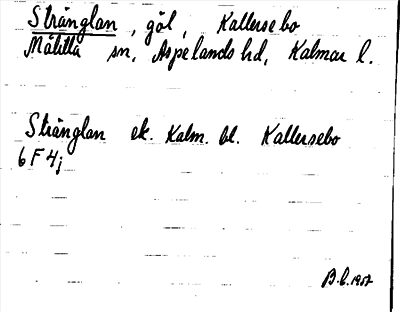 Stränglan, göl, Kallersebo
Målilla sn, Aspelands hd, Kalmar l.
Stränglan ek. Kalm. bl. Kallersebo
6 F 4j
B.L. 1957